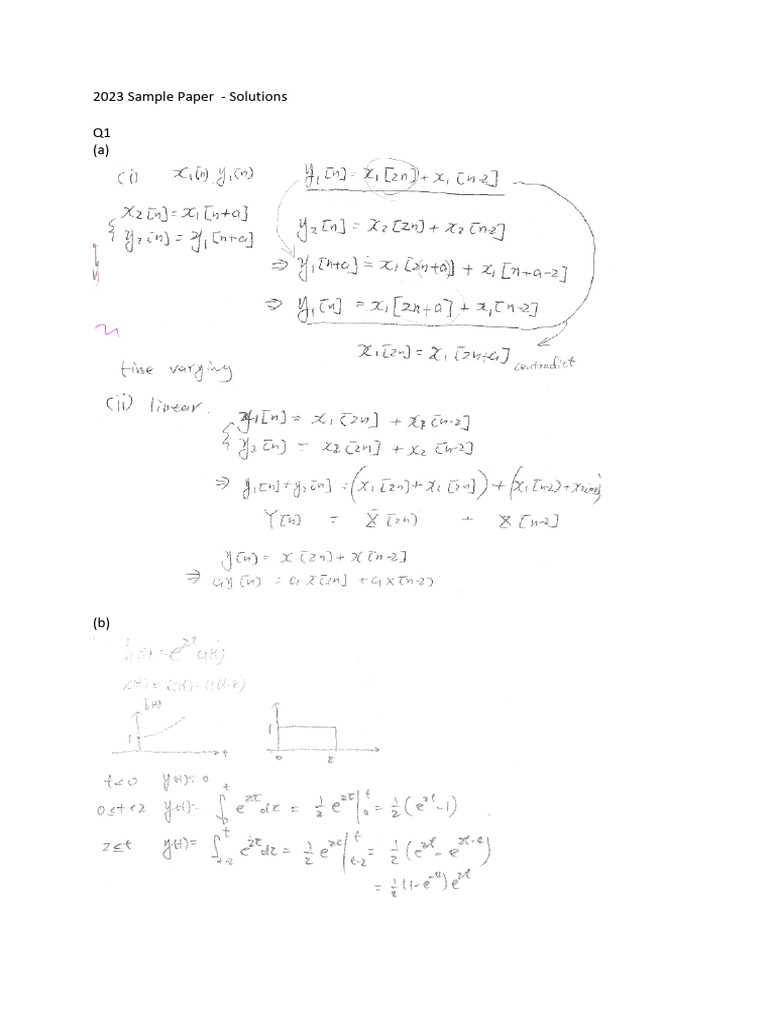 2023 Sample Paper - Solutions
Q1
(a)
(i) x₁[n] y₁[n] y₁[n] = x₁[2n] + x₁[n-2]
x₂[n] = x₁[n+a]
y₂[n] = y₁[n+a]
y₂[n] = x₂[2n] + x₂[n-2]
⇒ y₁[n+a] = x₁[2n+a)] + x₁[n+a-2]
⇒ y₁[n] = x₁[2n+a] + x₁[n-2]
x₁[2n] = x₁[2n+a] contradict
time varying
(ii) linear.
y₁[n] = x₁[2n] + x₂[n-2]
y₂[n] = x₂[2n] + x₂[n-2]
⇒ y₁[n]+y₂[n] = (x₁[2n]+x₂[2n]) + (x₁[n-2)+x₂[n-2])
Y[n) = X[2n) + X[n-2]
y[n) = x[2n)+x[n-2]
⇒ ay[n) = ax[2n] + ax[n-2)
(b)
h(t) = e^2t u(t)
x(t) = u(t)-u(t-2)
h(t)
1 t
1
0 2
t<0 y(t)= 0
0≤t<2 y(t)= ∫₀^t e^2τ dτ = ½ e^2τ |₀^t = ½(e^2t -1)
2≤t y(t)= ∫_t-2^t e^2τ dτ = ½ e^2τ |_t-2^t = ½(e^2t - e^2t-4)
= ½(1-e^-4)e^2t